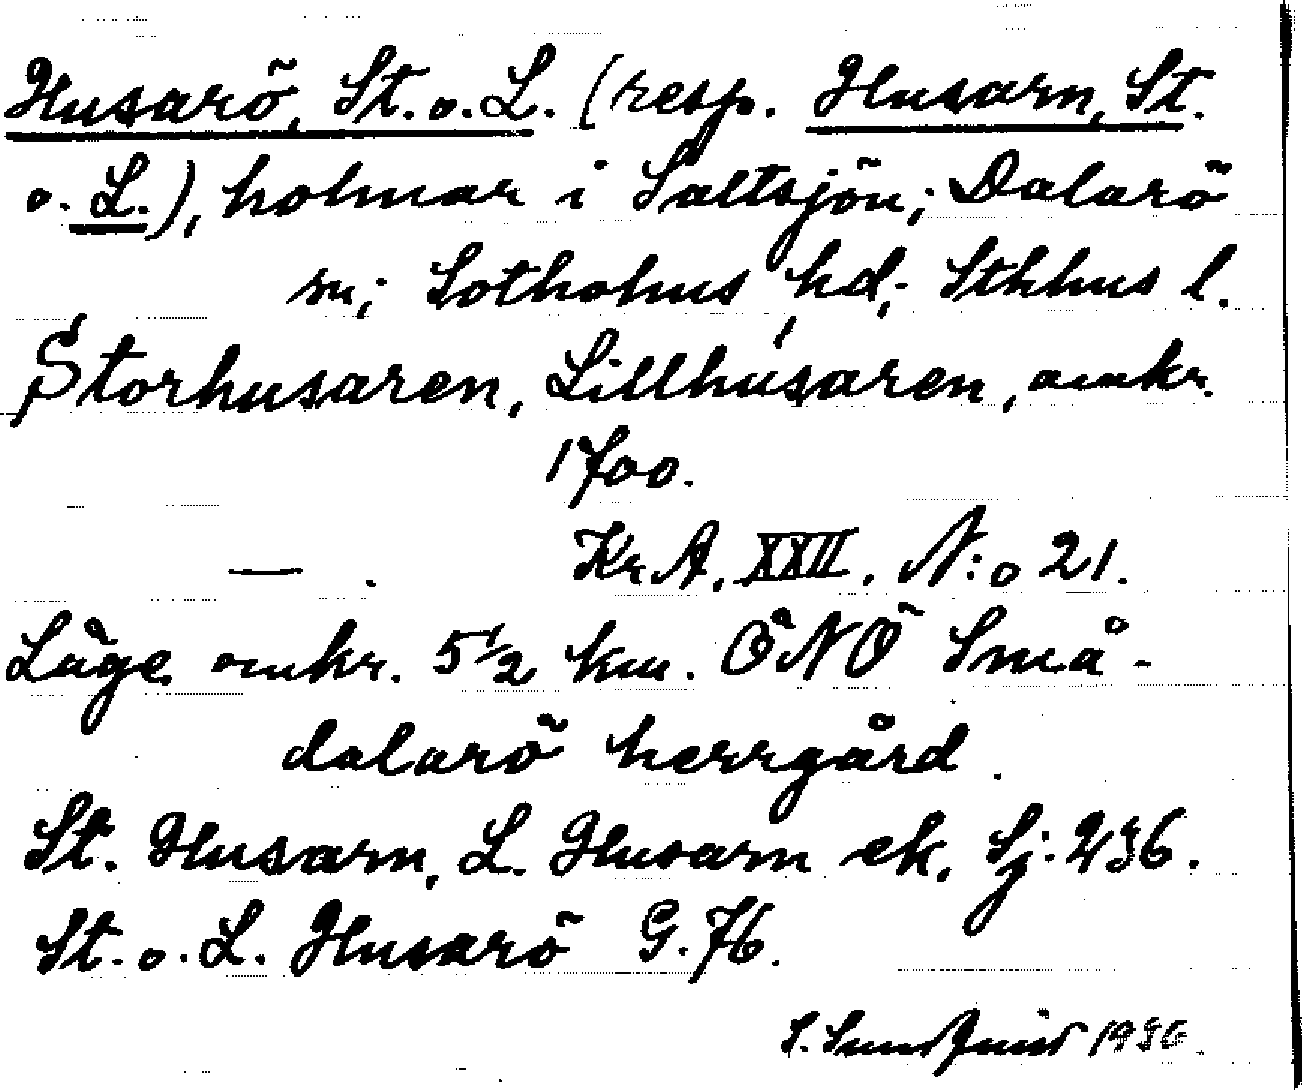 Husarö, St. o. L. (resp. Husarn, St.
o. L.), holmar i Saltsjön; Dalarö
sn; Sotholms hd; Sthlms l.
Storhusaren, Lillhusaren, omkr.
1700.
— . Kr A, XXII, N:o 21.
Läge omkr. 5 1/2 km. ÖNÖ Små-
dalarö herrgård.
St. Husarn, L. Husarn ek. Sj: 236.
St. o. L. Husarö G. 76.
S. Sundquist 1936.